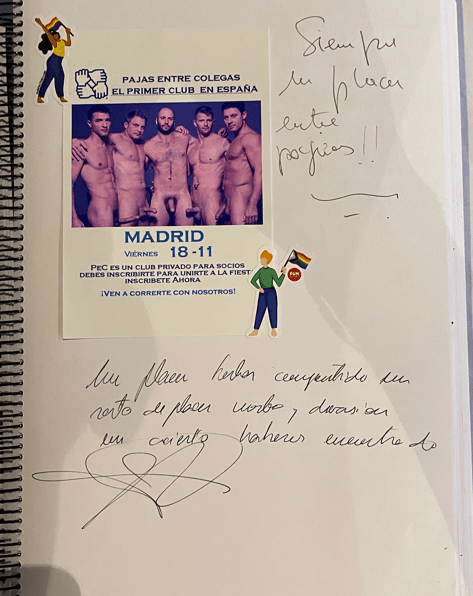 PAJAS ENTRE COLEGAS
EL PRIMER CLUB EN ESPAÑA
MADRID
VIÉRNES 18-11
PEC ES UN CLUB PRIVADO PARA SOCIOS
DEBES INSCRIBIRTE PARA UNIRTE A LA FIEST
INSCRIBETE AHORA
¡VEN A CORRERTE CON NOSOTROS!
Siempre
un placer
entre
!!
Un placer haber compartido un
rato de placer morbo y diversion
un acierto haberos encontrado